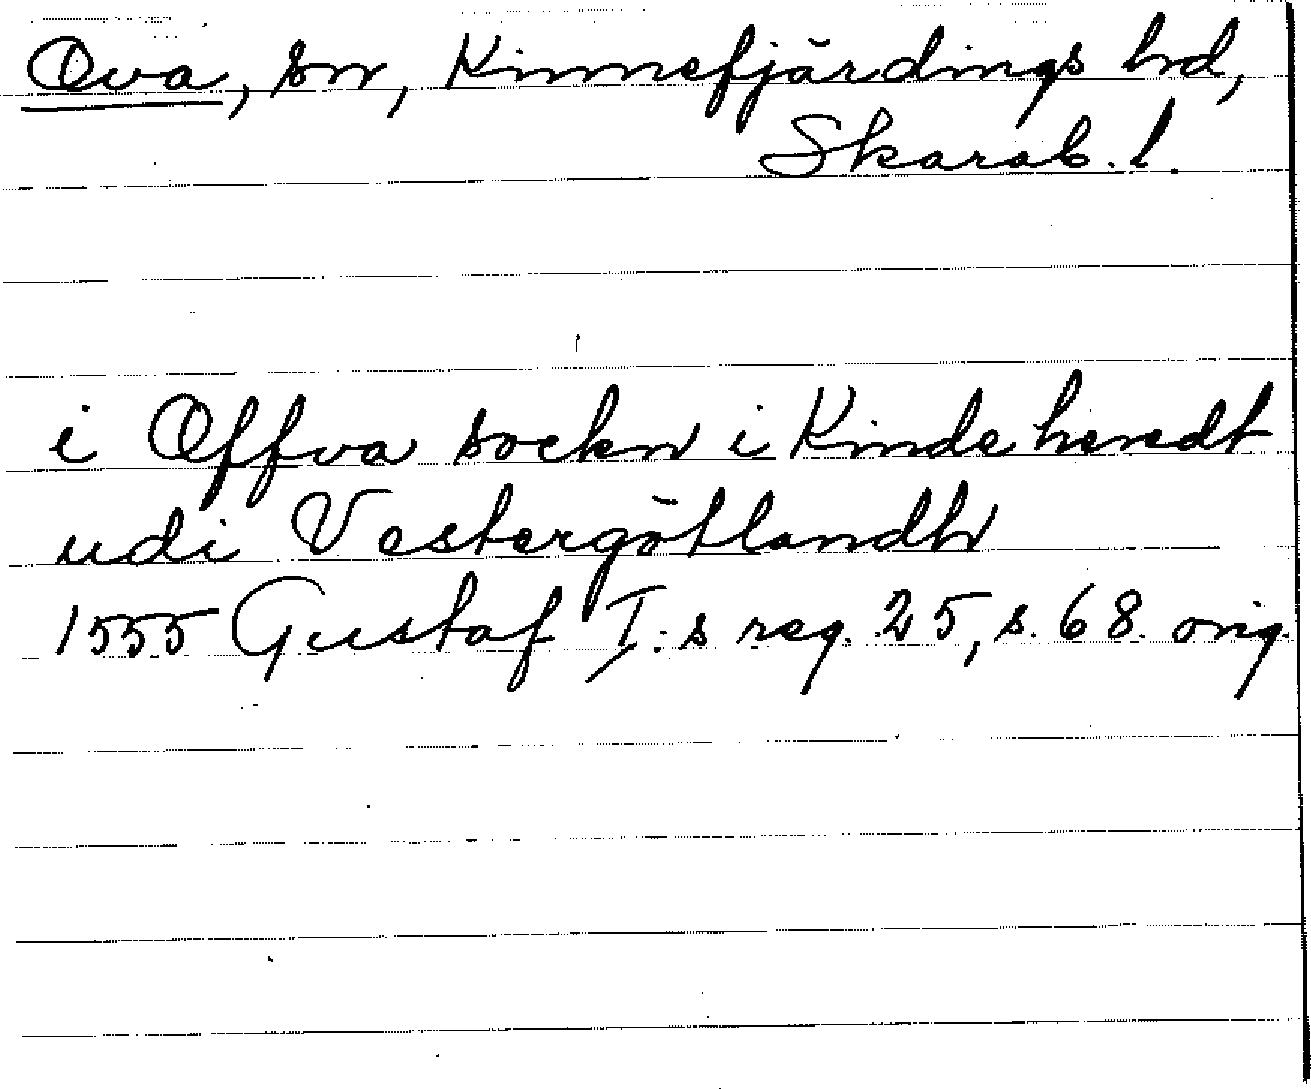 Ova, sn, Kinnefjärdings hd,
Skarab. l.
i Offva sockn i Kinde heredt
udi Vestergötlandh
1555 Gustaf I:s reg. 25, s. 68. orig.